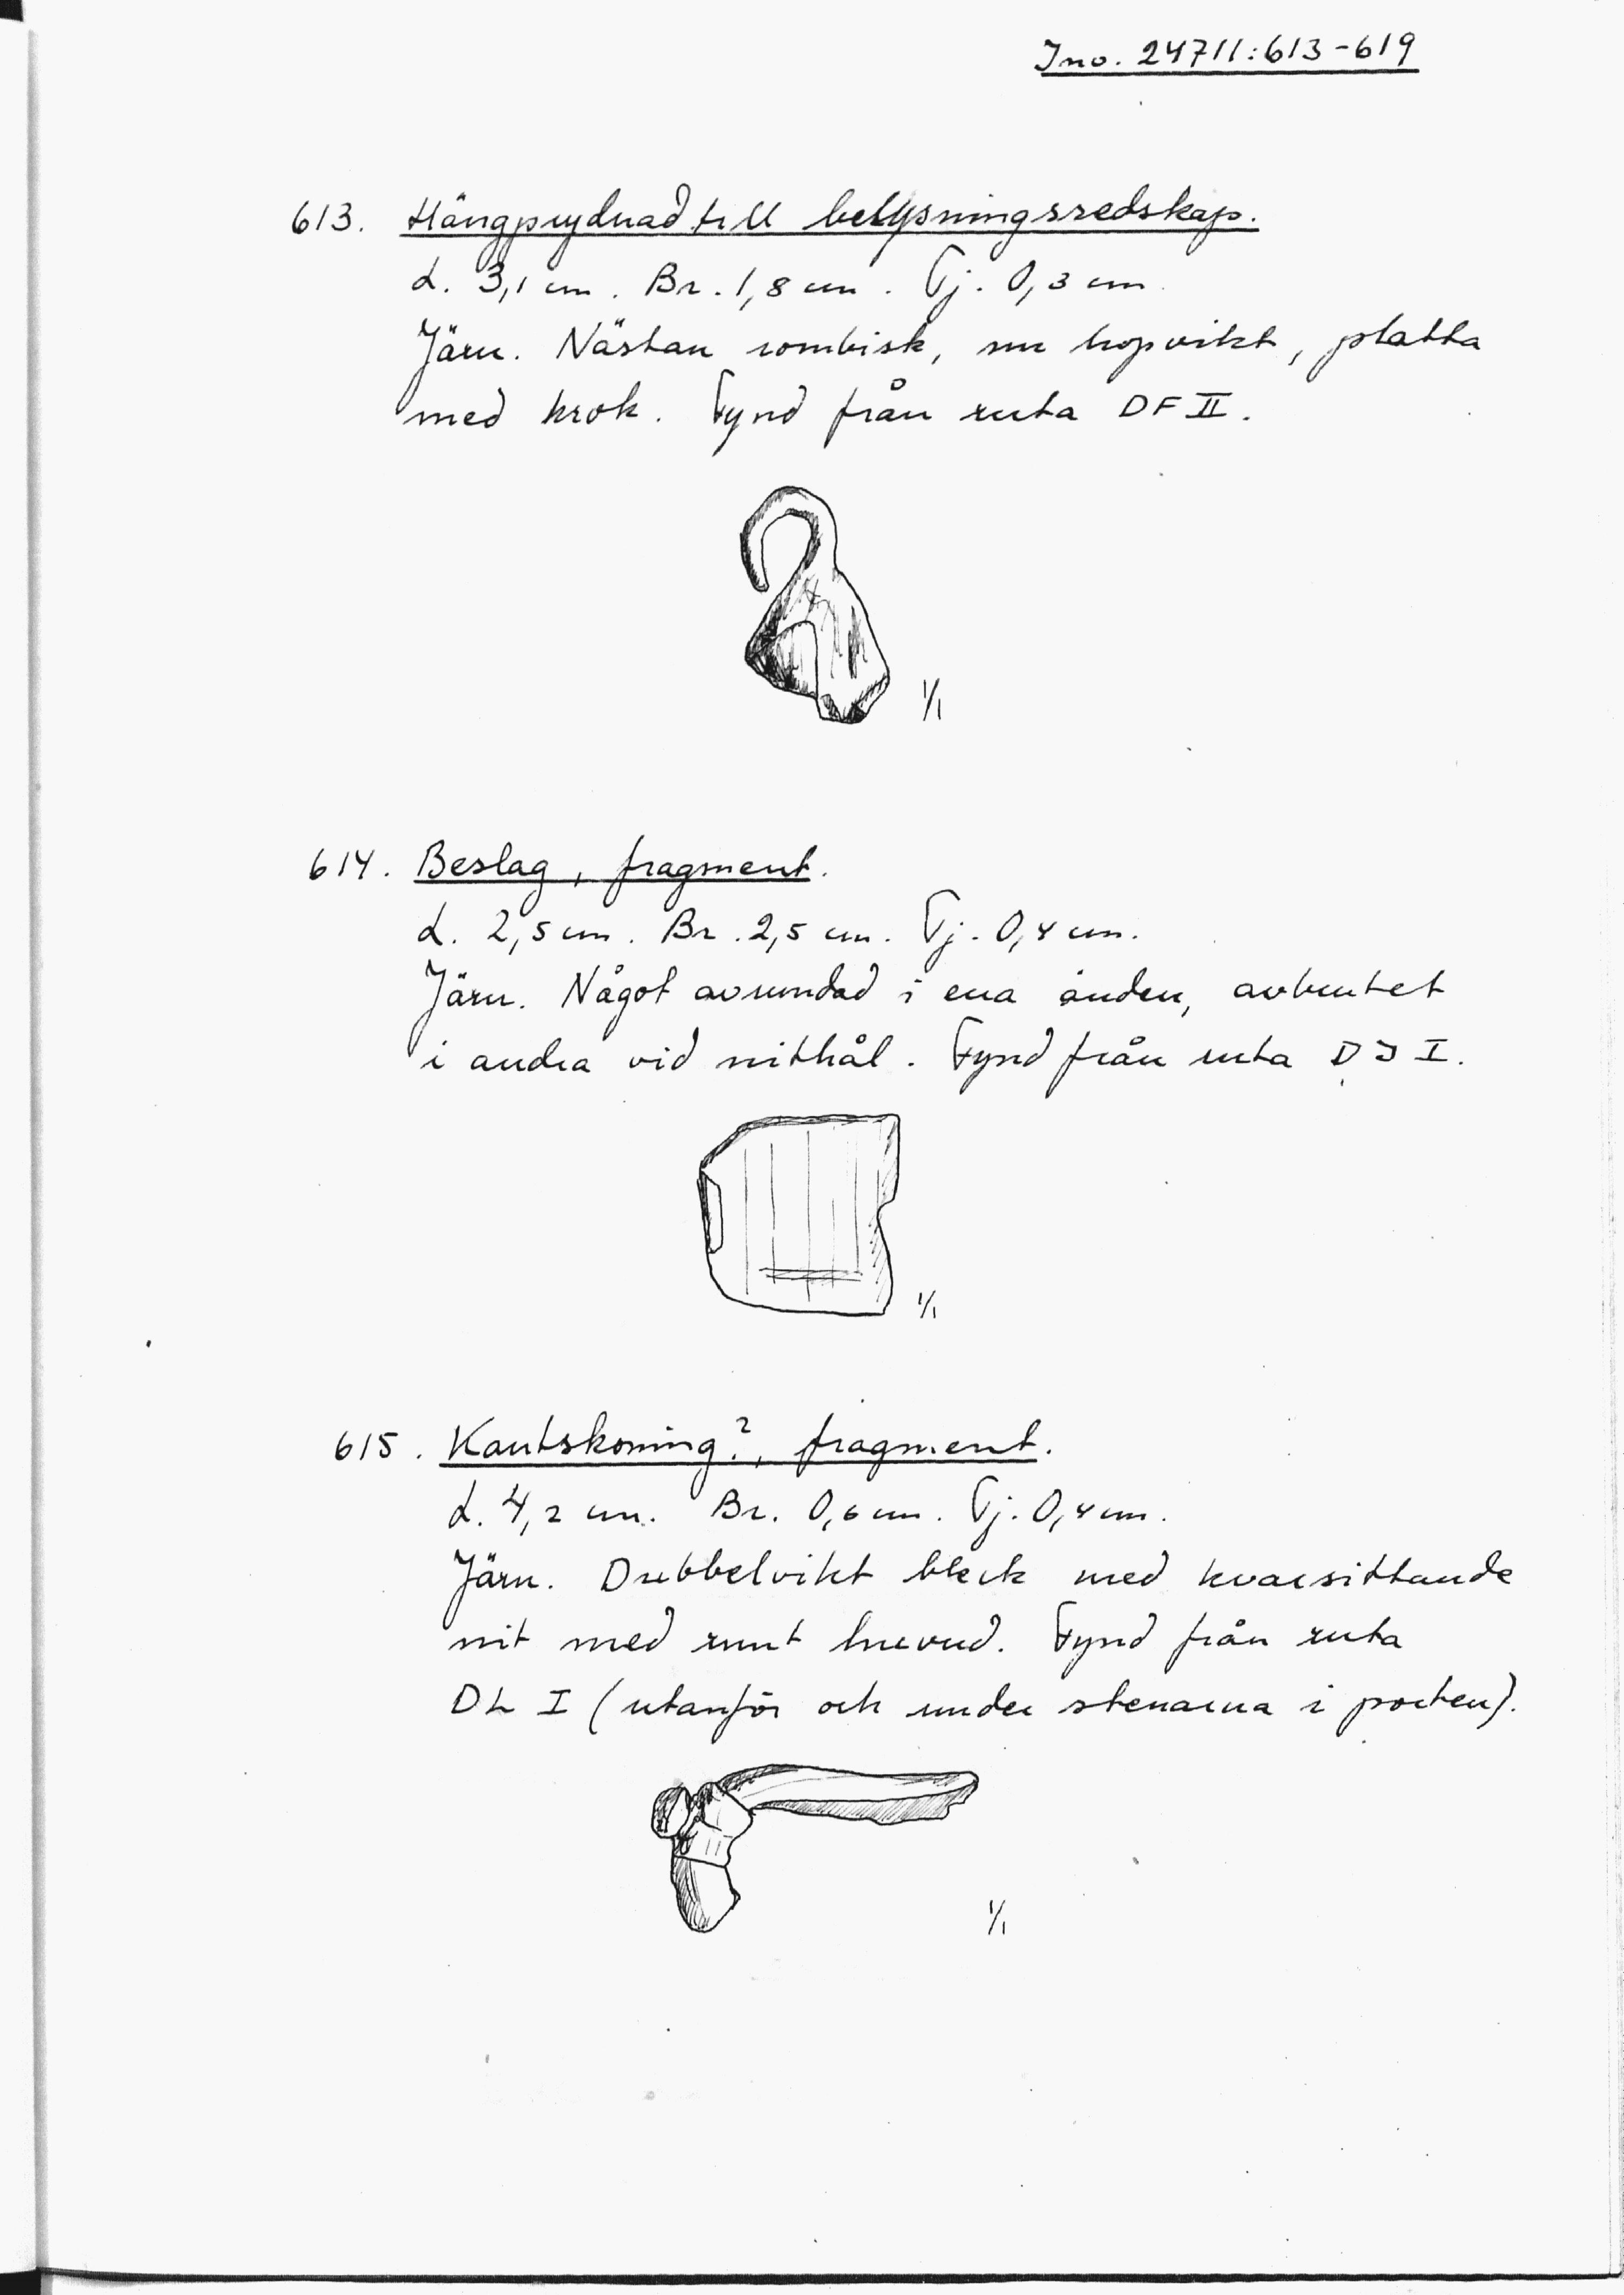 Ino. 24711:613-619
613. Hängprydnad till belysningsredskap.
L. 3,1 cm. Br. 1,8 cm. Tj. 0,3 cm.
Järn. Nästan rombisk, nu hopvikt, platta
med krok. Fynd från ruta DF II.
1/1
614. Beslag, fragment.
L. 2,5 cm. Br. 2,5 cm. Tj. 0,4 cm.
Järn. Något avrundad i ena änden, avbrutet
i andra vid nithål. Fynd från ruta DJ I.
1/1
615. Kantskoning?, fragment.
L. 4,2 cm. Br. 0,6 cm. Tj. 0,4 cm.
Järn. Dubbelvikt bleck med kvarsittande
nit med runt huvud. Fynd från ruta
DL I (utanför och under stenarna i porten).
1/1